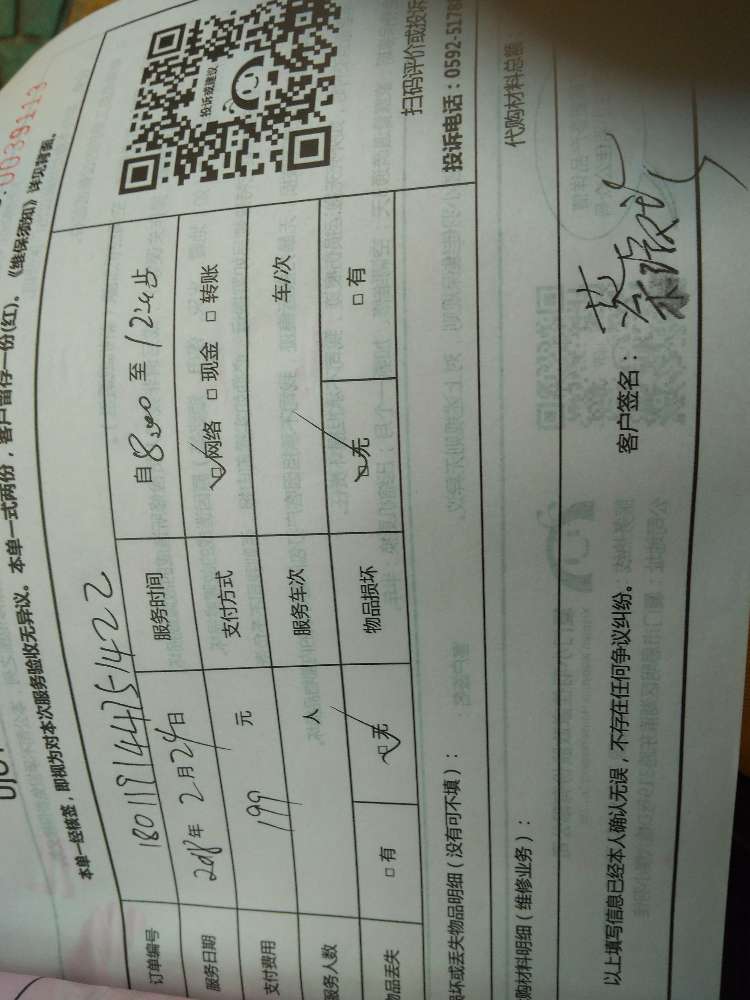 0039113
本单一经核签，即视为对本次服务验收无异议。本单一式两份，客户留存一份(红)。《维保须知》详见背面。
订单编号 180119144351422
服务时间 自8:00 至
服务日期 2018年2月24日
支付方式 网络 现金 转账
支付费用 199 元
服务车次 车/次
服务人数 人
物品丢失 有 无
物品损坏 无 有
投诉或建议
扫码评价或投诉
投诉电话：0592-5178
损坏或丢失物品明细（没有可不填）：
代购材料明细（维修业务）：
代购材料总额：
以上填写信息已经本人确认无误，不存在任何争议纠纷。
客户签名：